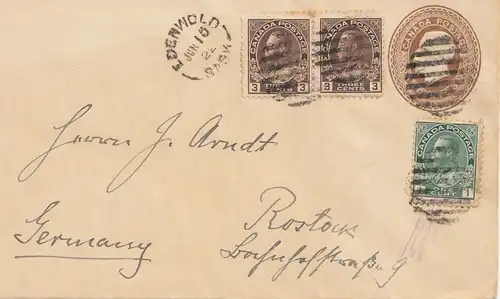 EDENWOLD
JUN 15
22
SASK
CANADA POSTAGE
3 THREE CENTS 3
CANADA POSTAGE
3 THREE CENTS 3
CANADA
CANADA POSTAGE
1
Herrn J. Arndt
Rostock
Germany
Bahnhofstraße 9